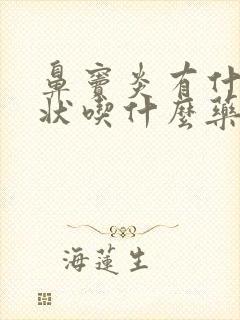 鼻竇炎有什
狀喫什麼藥
海蓮生